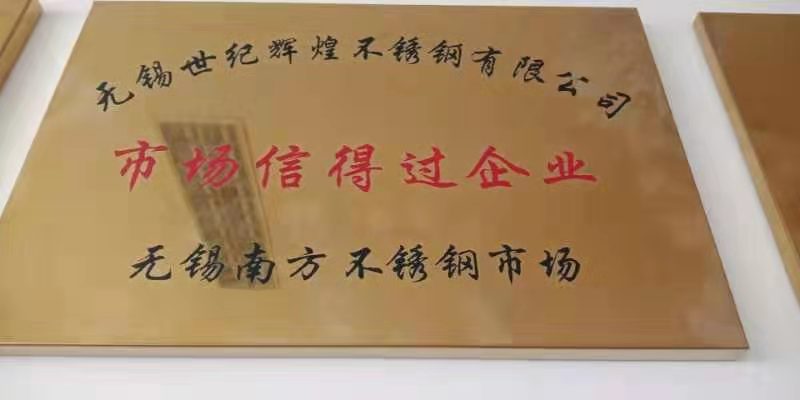 无锡世纪辉煌不锈钢有限公司
市场信得过企业
无锡南方不锈钢市场